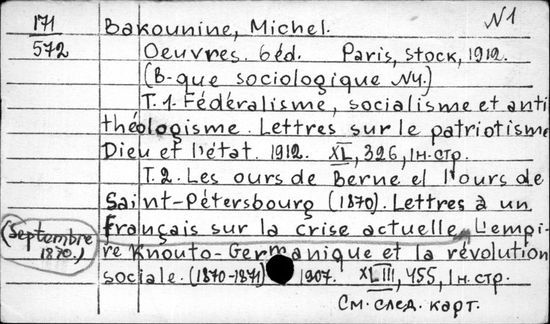 171
572
Bakounine, Michel.
N1
Oeuvres. 6éd. Paris, Stock, 1912.
(B-que sociologique N4.)
T. 1. Fédéralisme, socialisme et anti
théologisme. Lettres sur le patriotisme
Dieu et l'état. 1912. XL, 326, 1 н. стр.
T. 2. Les ours de Berne el l'ours de
Saint-Pétersbourg (1870). Lettres à un
français sur la crise actuelle. L'empi-
(Septembre
1870.)
re Knouto-Germanique et la révolution
sociale. (1870-1871) 1907. XLIII, 455, 1 н. стр.
См. след. карт.